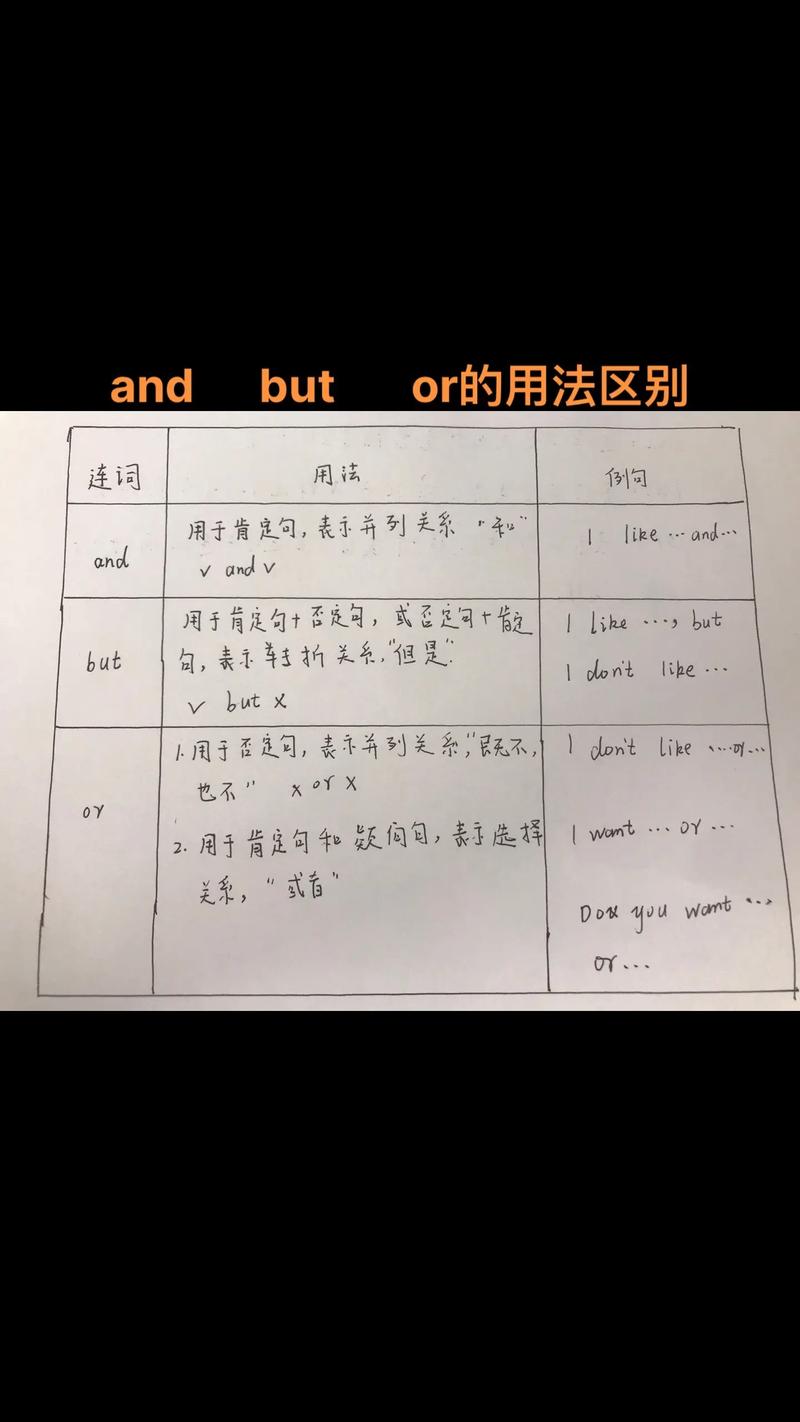 and but or的用法区别
连词 用法 例句
and
用于肯定句，表示并列关系 "和"
√ and √
I like … and …
but
用于肯定句+否定句，或否定句+肯定
句，表示转折关系，"但是"
√ but ×
I like …, but
I don't like …
or
1. 用于否定句，表示并列关系，"既不，
也不" × or ×
2. 用于肯定句和疑问句，表示选择
关系，"或者"
I don't like … or …
I want … or …
Do you want …
or …